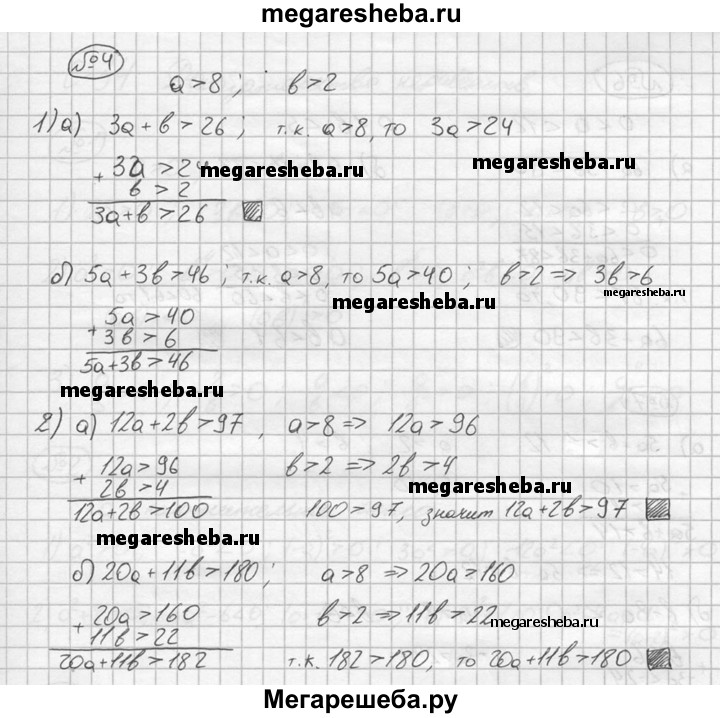 megaresheba.ru
№4
a>8; b>2
1) а) 3a+b>26; т.к. a>8, то 3a>24
megaresheba.ru
+ 3a>24
megaresheba.ru
b>2
3a+b>26
б) 5a+3b>46; т.к. a>8, то 5a>40; b>2 => 3b>6
megaresheba.ru
megaresheba.ru
+ 5a>40
3b>6
5a+3b>46
megaresheba.ru
2) а) 12a+2b>97, a>8 => 12a>96
+ 12a>96 b>2 => 2b>4
2b>4
megaresheba.ru
12a+2b>100 100>97, значит 12a+2b>97
megaresheba.ru
б) 20a+11b>180; a>8 => 20a>160
+ 20a>160 b>2 => 11b>22
megaresheba.ru
11b>22
20a+11b>182 т.к. 182>180, то 20a+11b>180
Мегарешеба.ру